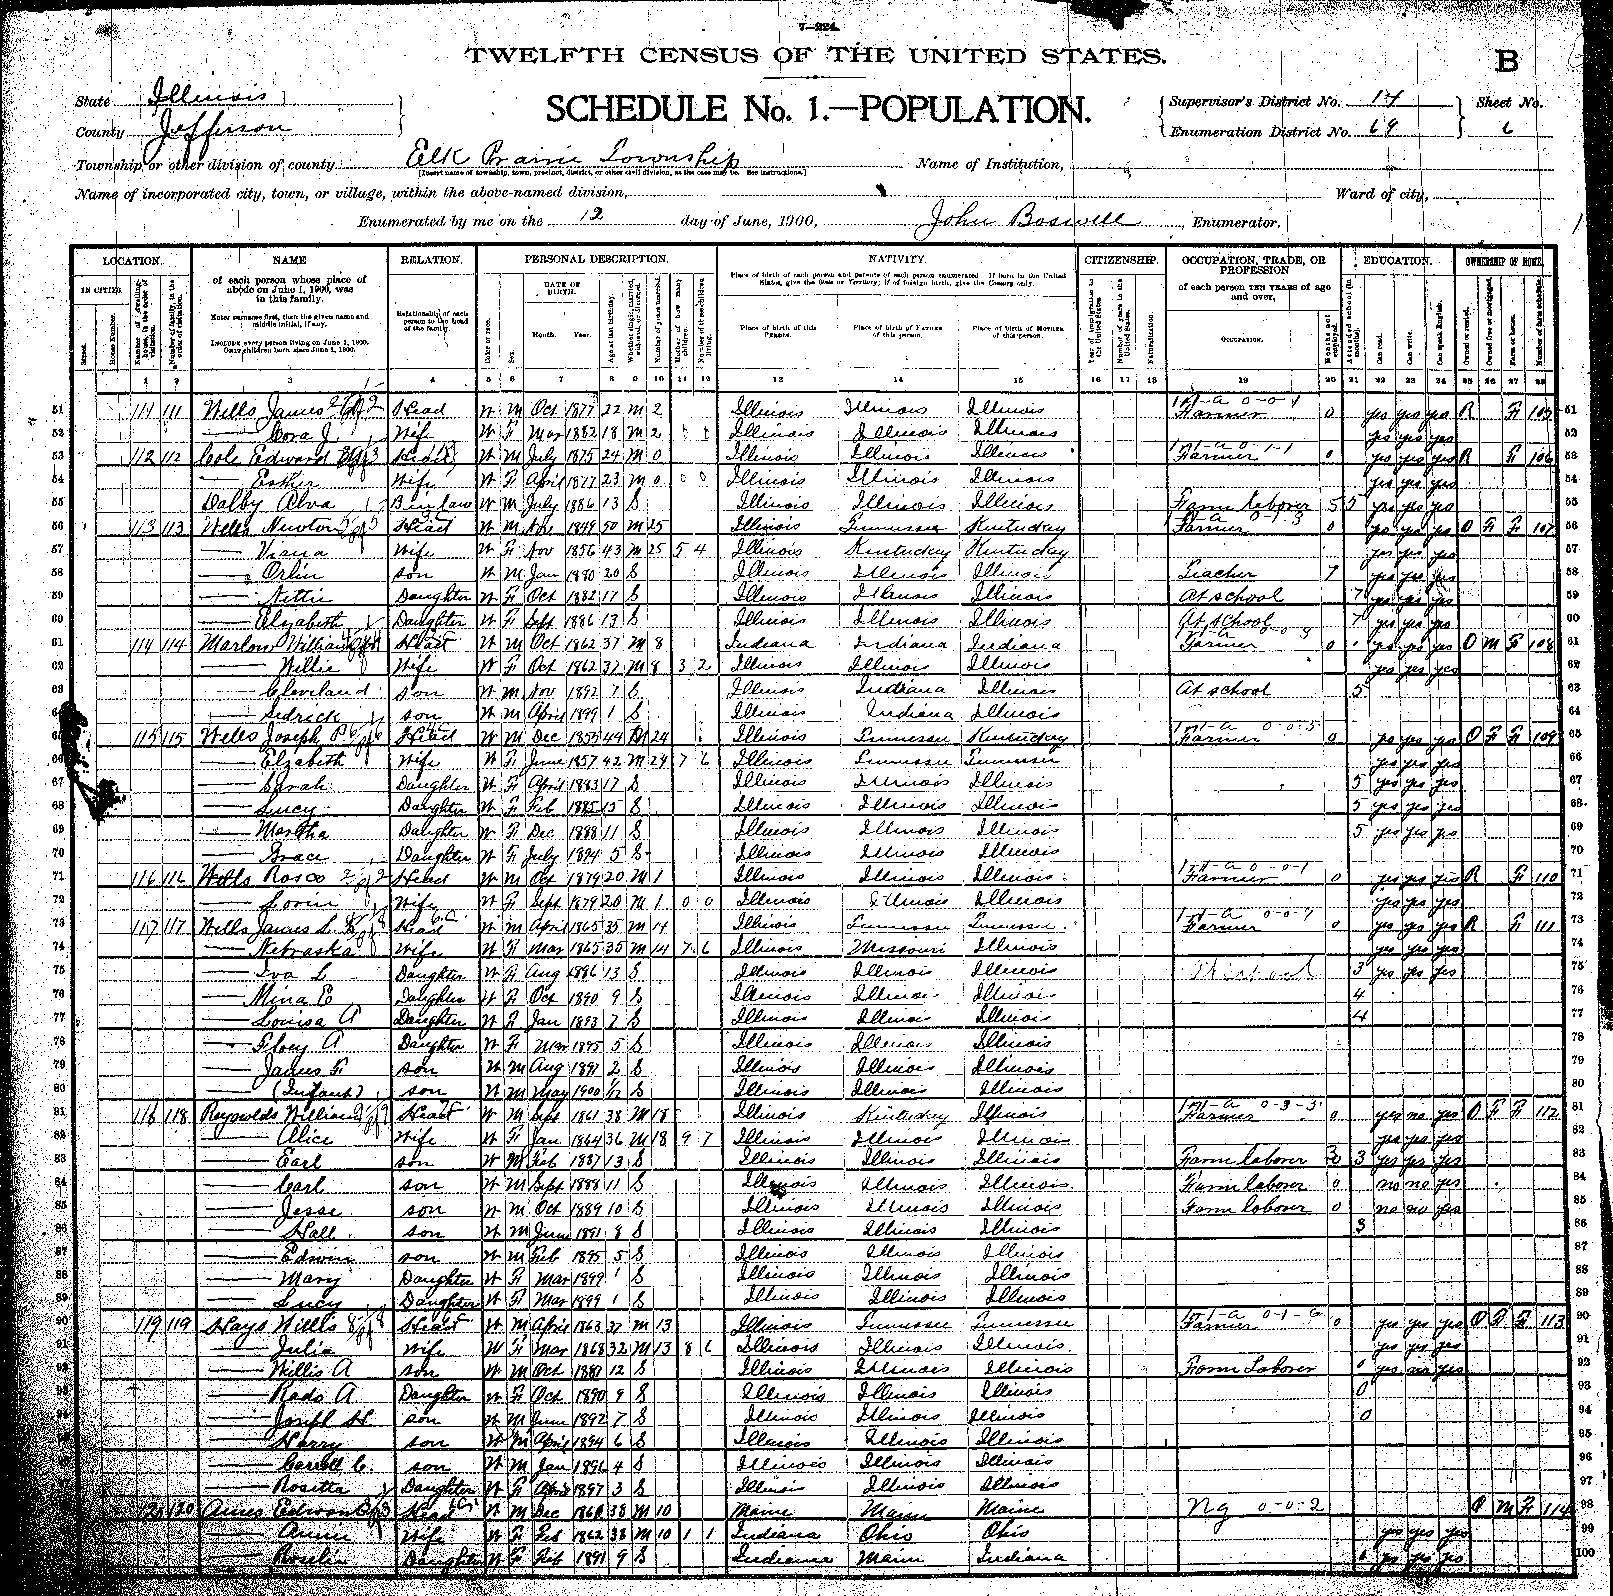 TWELFTH CENSUS OF THE UNITED STATES.
B
State Illinois
SCHEDULE No. 1.—POPULATION.
Supervisor's District No. 14 Sheet No.
County Jefferson
Enumeration District No. 69 6
Township or other division of county Elk Prairie Township Name of Institution,
[Insert name of township, town, precinct, district, or other civil division, as the case may be. See instructions.]
Name of incorporated city, town, or village, within the above-named division, Ward of city,
Enumerated by me on the 12 day of June, 1900, John Boswell, Enumerator.
LOCATION. NAME RELATION. PERSONAL DESCRIPTION. NATIVITY. CITIZENSHIP. OCCUPATION, TRADE, OR PROFESSION EDUCATION. OWNERSHIP OF HOME.
IN CITIES of each person whose place of abode on June 1, 1900, was in this family. Relationship of each person to the head of the family. DATE OF BIRTH. of each person TEN YEARS of age and over.
Enter surname first, then the given name and middle initial, if any. Month. Year. Place of birth of this PERSON. Place of birth of FATHER of this person. Place of birth of MOTHER of this person. OCCUPATION.
INCLUDE every person living on June 1, 1900. OMIT children born since June 1, 1900.
1 2 3 4 5 6 7 8 9 10 11 12 13 14 15 16 17 18 19 20 21 22 23 24 25 26 27 28
51 111 111 Wells James Head W M Oct 1877 22 M 2 Illinois Illinois Illinois Farmer 0 yes yes yes R F 105 51
52 Cora J Wife W F Mar 1882 18 M 2 Illinois Illinois Illinois yes yes yes 52
53 112 112 Cole Edward Head W M July 1875 24 M 0 Illinois Illinois Illinois Farmer 0 yes yes yes R F 106 53
54 Esther Wife W F April 1877 23 M 0 0 0 Illinois Illinois Illinois yes yes yes 54
55 Dalby Alva B in law W M July 1886 13 S Illinois Illinois Illinois Farm laborer 5 5 yes yes yes 55
56 113 113 Wells Newton Head W M Nov 1849 50 M 25 Illinois Tennessee Kentuckey Farmer 0 yes yes yes O F F 107 56
57 Viana Wife W F Nov 1856 43 M 25 5 4 Illinois Kentuckey Kentuckey yes yes yes 57
58 Orlin son W M Jan 1880 20 S Illinois Illinois Illinois Teacher 7 yes yes yes 58
59 Nettie Daughter W F Oct 1882 17 S Illinois Illinois Illinois At school 7 yes yes yes 59
60 Elzabeth Daughter W F Sept 1886 13 S Illinois Illinois Illinois At school 7 yes yes yes 60
61 114 114 Marlow William Head W M Oct 1862 37 M 8 Indiana Indiana Indiana Farmer 0 yes yes yes O M F 108 61
62 Wife W F Oct 1862 37 M 8 3 2 Illinois Illinois Illinois yes yes yes 62
63 Cleveland son W M Nov 1892 7 S Illinois Indiana Illinois At school 5 63
64 Sedrick son W M April 1899 1 S Illinois Indiana Illinois 64
65 115 115 Wells Joseph P Head W M Dec 1855 44 M 24 Illinois Tennessee Kentuckey Farmer 0 yes yes yes O F F 109 65
66 Elzabeth Wife W F June 1857 42 M 24 7 6 Illinois Tennessee Tennessee yes yes yes 66
67 Sarah Daughter W F April 1883 17 S Illinois Illinois Illinois 5 yes yes yes 67
68 Lucy Daughter W F Feb 1885 15 S Illinois Illinois Illinois 5 yes yes yes 68
69 Martha Daughter W F Dec 1888 11 S Illinois Illinois Illinois 5 yes yes yes 69
70 Grace Daughter W F July 1894 5 S Illinois Illinois Illinois 70
71 116 116 Wells Rosco Head W M Oct 1879 20 M 1 Illinois Illinois Illinois Farmer 0 yes yes yes R F 110 71
72 Wife W F Sept 1879 20 M 1 0 0 Illinois Illinois Illinois yes yes yes 72
73 117 117 Wells James L Head W M April 1865 35 M 14 Illinois Tennessee Tennessee Farmer 0 yes yes yes R F 111 73
74 Nebraska Wife W F Mar 1865 35 M 14 7 6 Illinois Missouri Illinois yes yes yes 74
75 Iva L Daughter W F Aug 1886 13 S Illinois Illinois Illinois At school 3 yes yes yes 75
76 Mina E Daughter W F Oct 1890 9 S Illinois Illinois Illinois 4 76
77 Louisa A Daughter W F Jan 1893 7 S Illinois Illinois Illinois 4 77
78 Floey A Daughter W F Mar 1895 5 S Illinois Illinois Illinois 78
79 James F son W M Aug 1897 2 S Illinois Illinois Illinois 79
80 (Infant) son W M May 1900 1/12 S Illinois Illinois Illinois 80
81 118 118 Reynolds William Head W M Sept 1861 38 M 18 Illinois Kentuckey Illinois Farmer 0 yes no yes O F F 112 81
82 Alice Wife W F Jan 1864 36 M 18 9 7 Illinois Illinois Illinois yes yes yes 82
83 Earl son W M Feb 1887 13 S Illinois Illinois Illinois Farm laborer 3 yes yes yes 83
84 Carl son W M Sept 1888 11 S Illinois Illinois Illinois Farm laborer 0 no no yes 84
85 Jesse son W M Oct 1889 10 S Illinois Illinois Illinois Farm laborer 0 no no yes 85
86 Hall son W M June 1891 8 S Illinois Illinois Illinois 3 86
87 Edwin son W M Feb 1895 5 S Illinois Illinois Illinois 87
88 Mary Daughter W F Mar 1899 1 S Illinois Illinois Illinois 88
89 Lucy Daughter W F Mar 1899 1 S Illinois Illinois Illinois 89
90 119 119 Hays Willis Head W M April 1863 37 M 13 Illinois Tennessee Tennessee Farmer 0 yes yes yes O F F 113 90
91 Julia Wife W F Mar 1868 32 M 13 8 6 Illinois Illinois Illinois yes yes yes 91
92 Willis A son W M Oct 1887 12 S Illinois Illinois Illinois Farm Laborer 0 yes no yes 92
93 Rado A Daughter W F Oct 1890 9 S Illinois Illinois Illinois 0 93
94 Joseph H son W M June 1892 7 S Illinois Illinois Illinois 0 94
95 Harry son W M April 1894 6 S Illinois Illinois Illinois 95
96 Carrell C. son W M Jan 1896 4 S Illinois Illinois Illinois 96
97 Rosetta Daughter W F April 1897 3 S Illinois Illinois Illinois 97
98 120 120 Ames Head W M Dec 38 M 10 Maine Maine Maine Ng 0-0-2 O M F 114 98
99 Annie Wife W F Feb 1862 38 M 10 1 1 Indiana Ohio Ohio yes yes yes 99
100 Daughter W F Feb 1891 9 S Indiana Maine Indiana yes yes yes 100